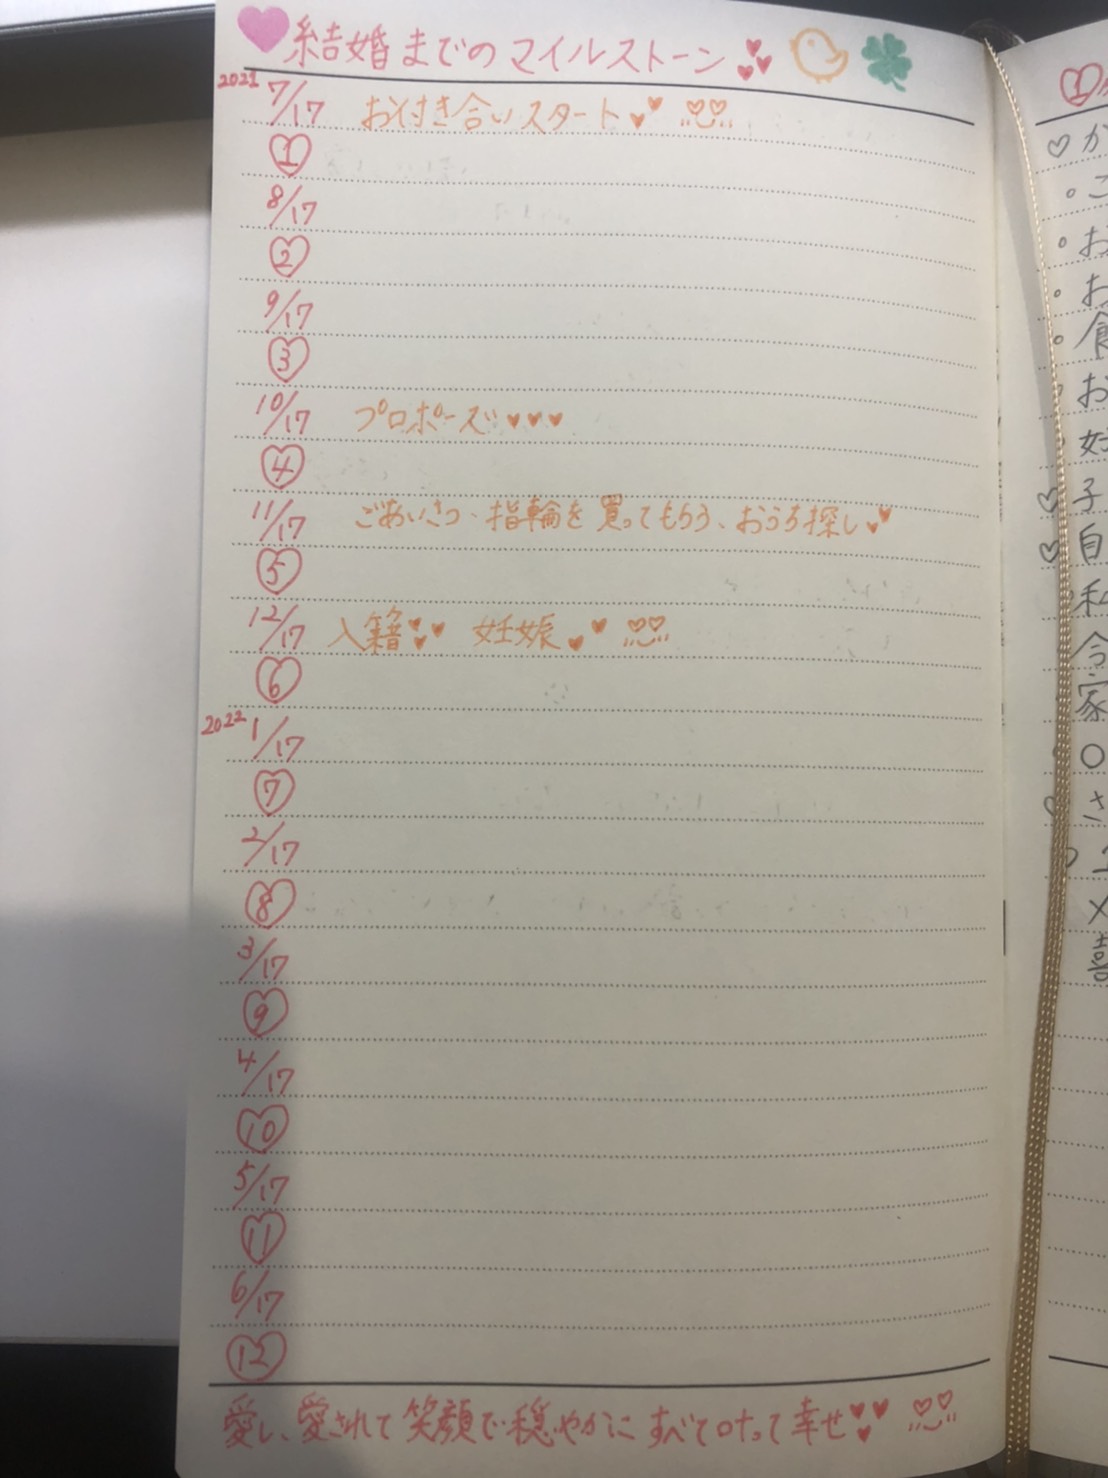 結婚までのマイルストーン
2021 7/17 お付き合いスタート
1
8/17
2
9/17
3
10/17 プロポーズ
4
11/17 ごあいさつ、指輪を買ってもらう、おうち探し
5
12/17 入籍 妊娠
6
2022 1/17
7
2/17
8
3/17
9
4/17
10
5/17
11
6/17
12
愛し、愛されて笑顔で穏やかにすべて叶って幸せ
①
か
こ
お
お
食
お
妊
子
自
私
令
家
○
さ
喜